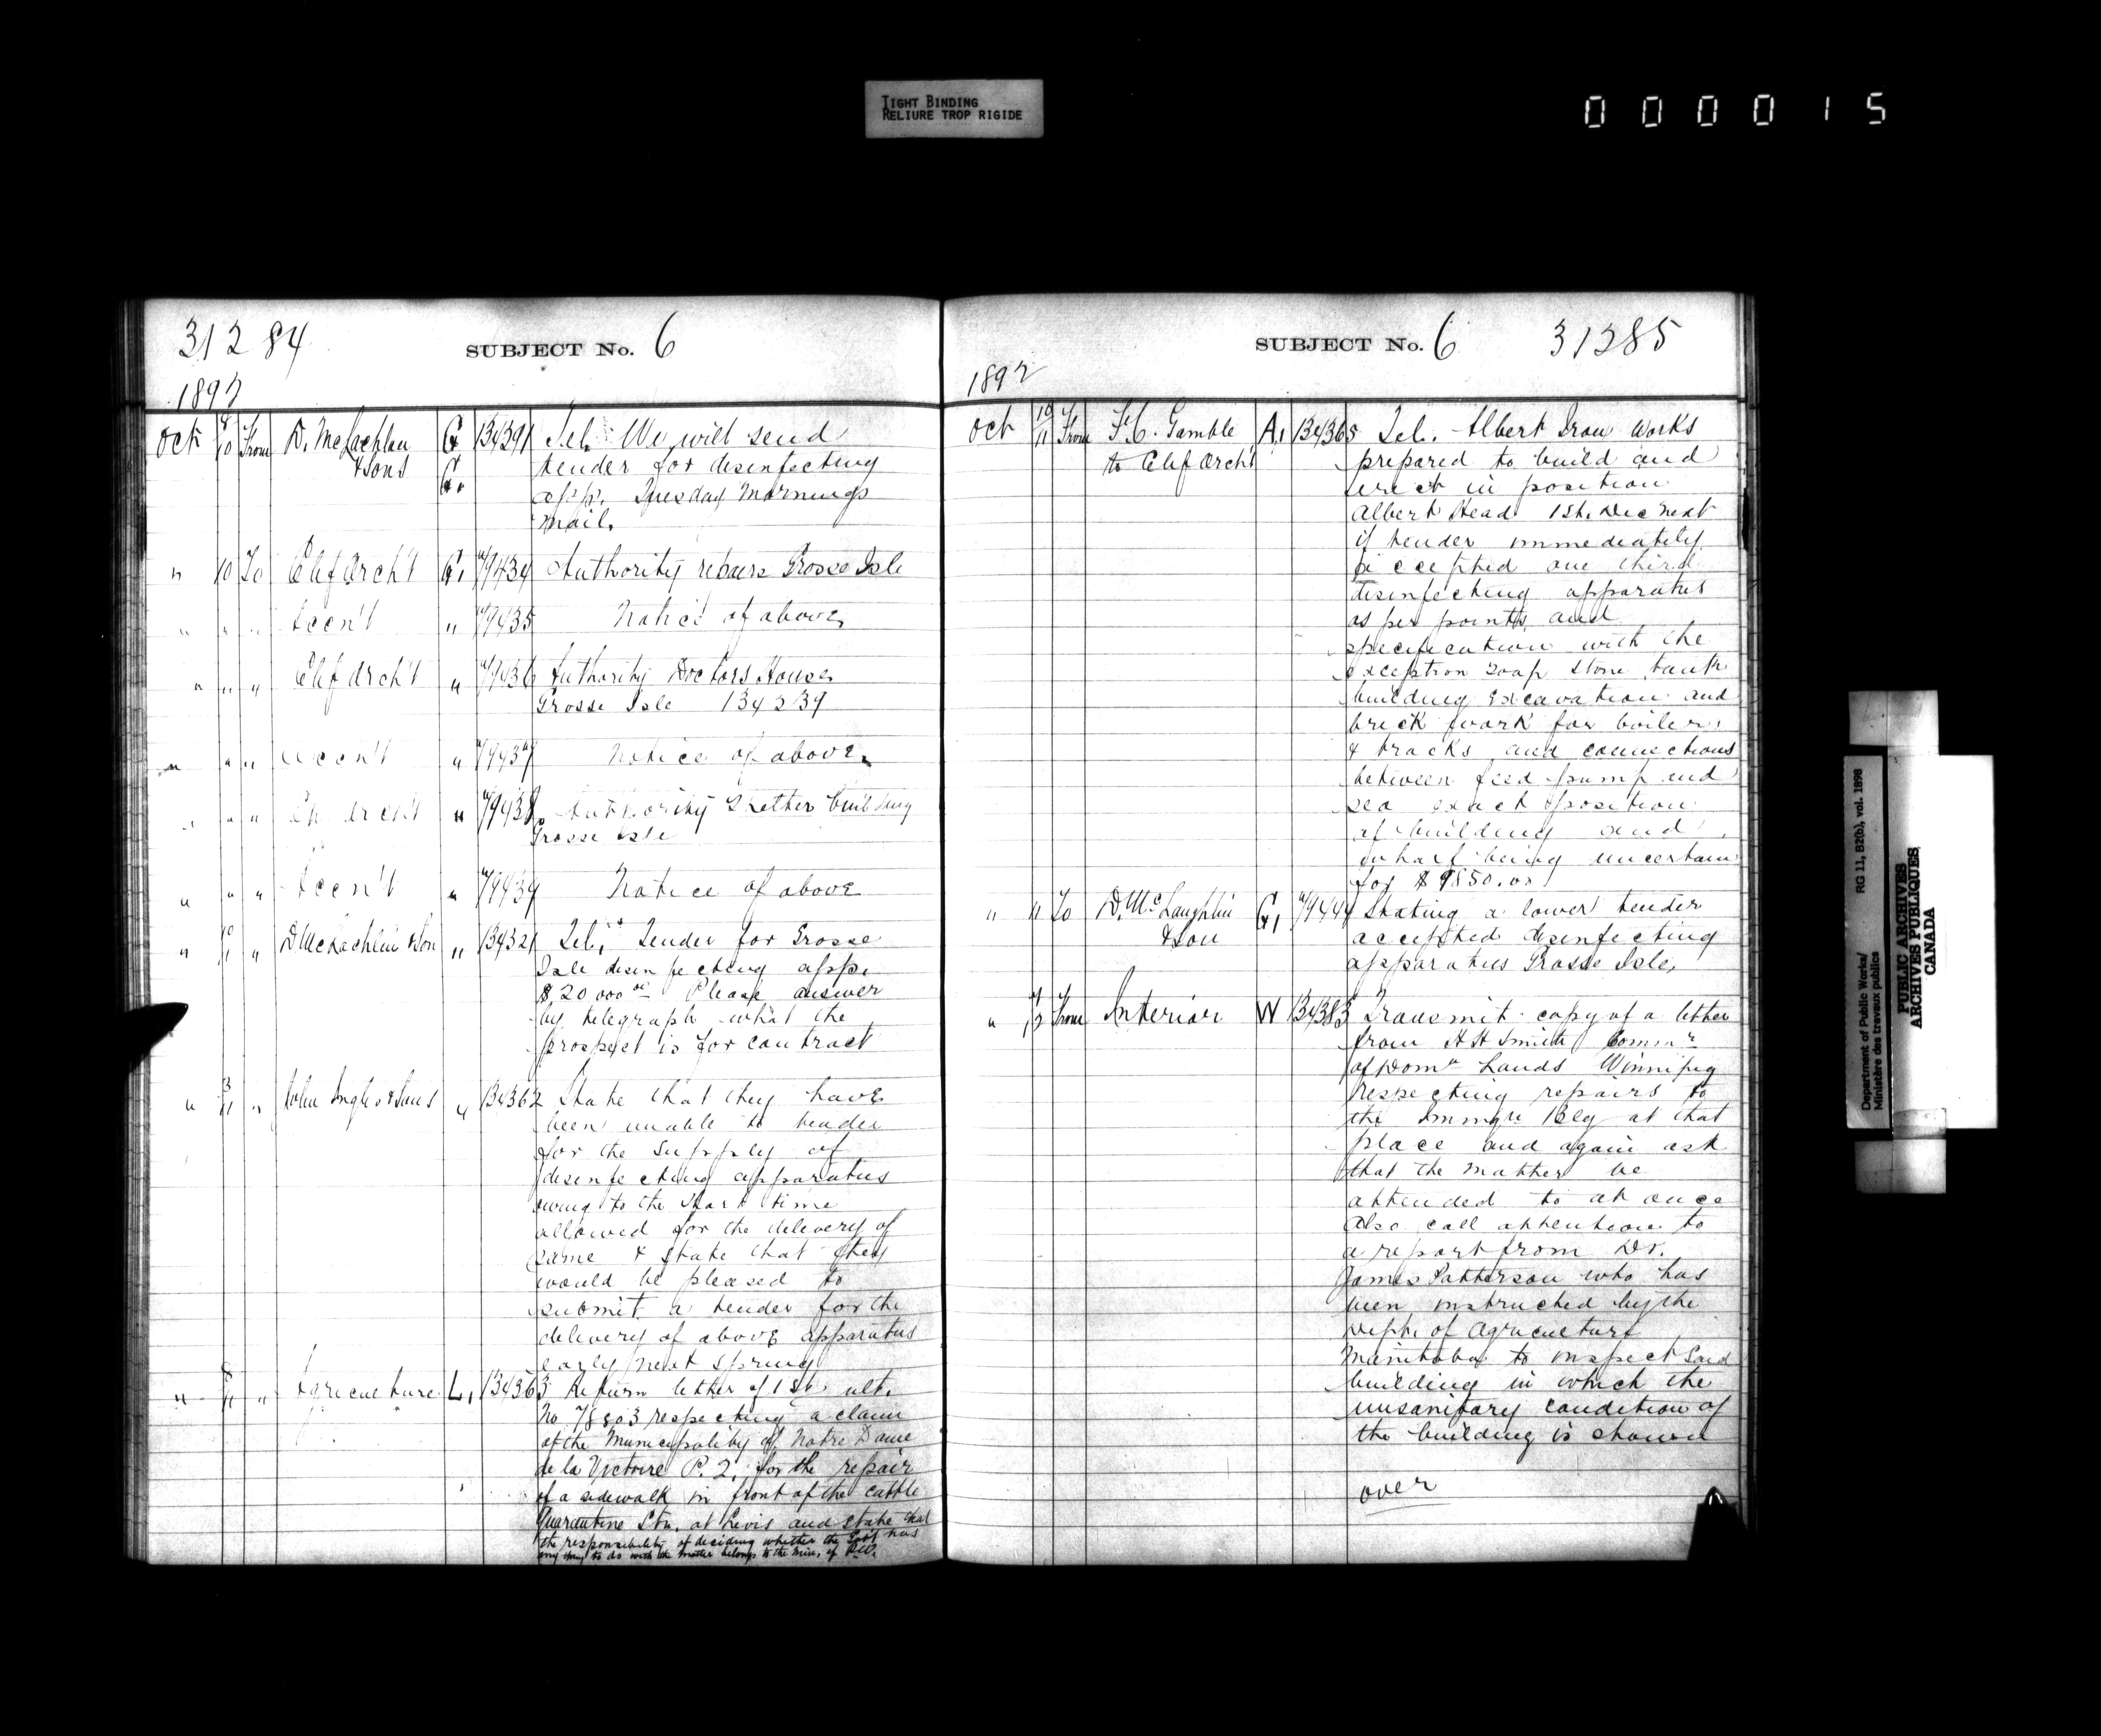 TIGHT BINDING
RELIURE TROP RIGIDE
000015
31284 SUBJECT No. 6
1892
Oct 8/10 From D. McLachlan & Sons G G. 134391 Tel. We will send
tender for desinfecting
app. Tuesday Mornings
mail.
" 10 To Chf Arch't G. 79434 Authority repairs Grosse Isle
" " " Accn't " 79435 Notice of above
" " " Chf Arch't " 79436 Authority Doctors House
Grosse Isle 134239
" " " Accn't " 79437 Notice of above
" " " Ch Arch't " 79438 Authority Shelter building
Grosse Isle
" " " Accn't " 79439 Notice of above
" 10/11 " D McLachlin & Son " 134321 Tel. Tender for Grosse
Isle desinfecting app.
$20,000.00 Please answer
by telegraph what the
prospect is for contract
" 3/11 " John Inglis & Sons " 134362 State that they have
been unable to tender
for the supply of
desinfecting apparatus
owing to the short time
allowed for the delivery of
same & state that they
would be pleased to
submit a tender for the
delivery of above apparatus
early next spring
" 8/11 " Agriculture L. 134363 Return letter of 1st ult.
No. 78803 respecting a claim
of the Municipality of Notre Dame
de la Victoire P. Q. for the repair
of a sidewalk in front of the cattle
Quarantine Stn. at Levis and state that
the responsibility of deciding whether the Govt has
any thing to do with the matter belongs to the Min. of P.W.
SUBJECT No. 6 31285
1892
Oct 10/11 From F.C. Gamble to Chf Arch't A. 134365 Tel. Albert Iron Works
prepared to build and
erect in position
Albert Head 1st. Dec next
if tender immediately
accepted one third
disinfecting apparatus
as per points and
specification with the
exception soap stone tank
building excavation and
brick work for boiler,
& tracks and connections
between feed pump and
sea exact position
of building and
wharf being uncertain
for $9850.00
" 11 To D. McLaughlin & Son G. 79444 Stating a lower tender
accepted desinfecting
apparatus Grosse Isle,
" 7/12 From Interior W 134383 Transmit copy of a letter
from H H Smith Commr
of Domn Lands Winnipeg
respecting repairs to
the Immgn Bldg at that
place and again ask
that the matter be
attended to at once
Also call attention to
a report from Dr.
James Patterson who has
been instructed by the
Dept. of Agriculture
Manitoba to inspect said
building in which the
unsanitary condition of
the building is shown
over
Department of Public Works/ RG 11, B2(b), vol. 1898
Ministère des travaux publics
PUBLIC ARCHIVES
ARCHIVES PUBLIQUES
CANADA